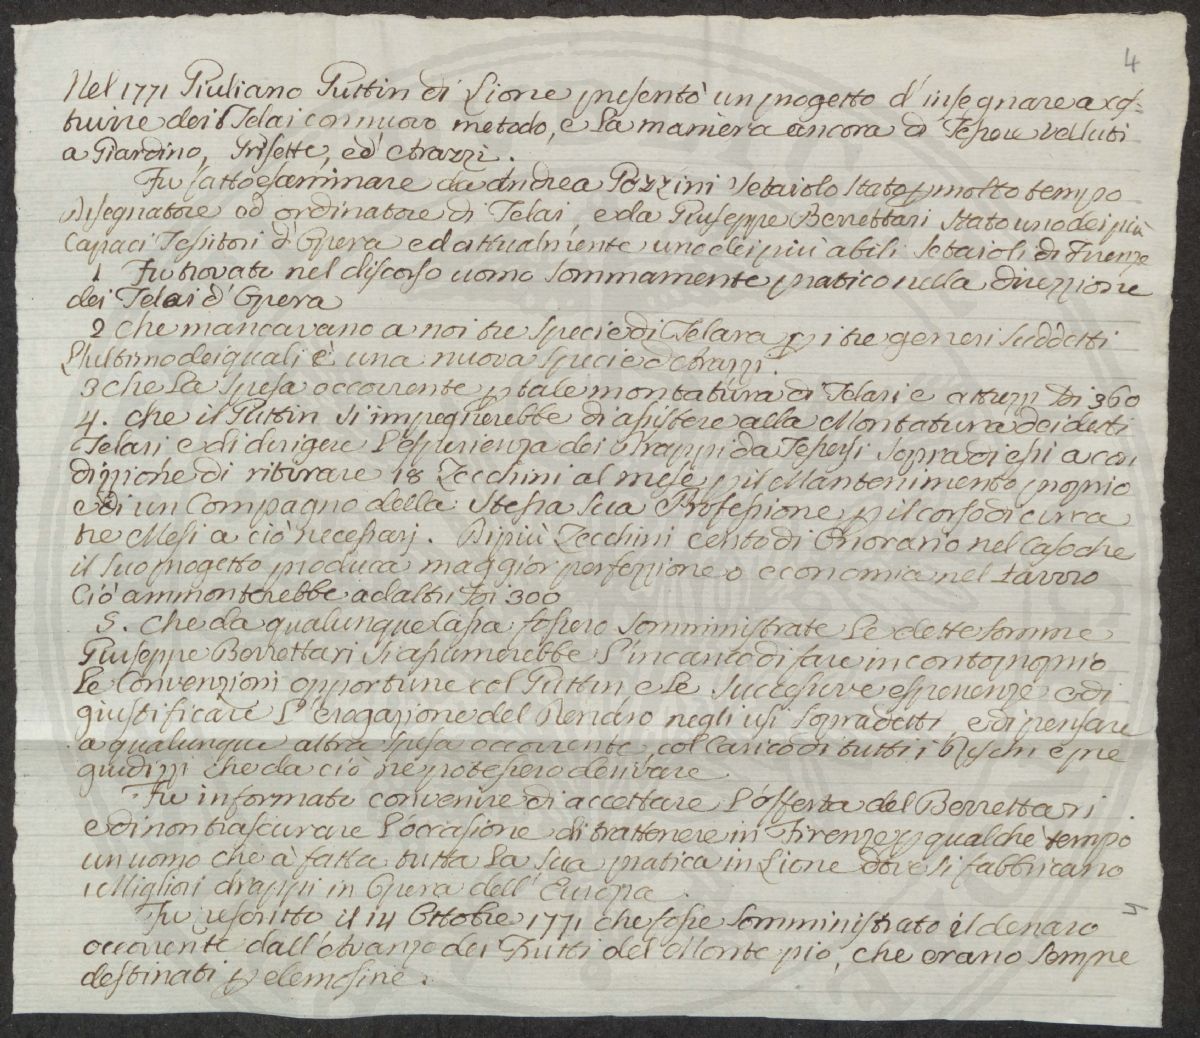 4
Nel 1771 Giuliano Guttin di Lione presentò un progetto d'insegnare a cos-
truire dei Telai con nuovo metodo, e la maniera ancora di Tessere velluti
a Giardino, Grisette, ed Arazzi.
Fu fatto esaminare da Andrea Pozzini Setaiolo stato p molto tempo
disegnatore ed ordinatore di Telai, e da Giuseppe Berrettari stato uno dei più
Capaci Tessitori d'Opera ed attualmente uno dei più abili Setaioli di Firenze
1 Fu trovato nel discorso uomo sommamente pratico nella direzzione
dei Telai d'Opera
2 Che mancavano a noi tre specie di Telara p i tre generi suddetti
l'ultimo dei quali è una nuova specie d'Arazzi.
3 che la spesa occorrente p tale montatura di Telari e attrezzi 360
4. che il Guttin s'impegnerebbe di assistere alla Montatura dei detti
Telari e di dirigere l'esperienza dei Drappi da Tessersi sopra di essi a con
dizzione di ritirare 18 Zecchini al mese p il Mantenimento proprio
e di un Compagno della Stessa sua Professione p il corso di circa
tre Mesi a ciò necessarj. Di più Zecchini cento di Onorario nel Caso che
il suo progetto produca maggior perfezzione o economia nel Lavoro
Ciò ammonterebbe ad altri 300
5. Che da qualunque Cassa fossero somministrate le dette somme
Giuseppe Berrettari si assumerebbe l'incanto di fare in conto proprio
le Convenzioni opportune col Guttin e le successive esperienze e di
giustificare l'erogazione del Denaro negli usi sopradetti e di pensare
a qualunque altra spesa occorrente, col Carico di tutti i Rischi e pre
giudizzi che da ciò ne potessero derivare
Fu informato convenire di accettare l'offerta del Berrettari
e di non trascurare l'occasione di trattenere in Firenze p qualche tempo
un uomo che à fatta tutta la sua pratica in Lione dove si fabbricano
i Migliori drappi in Opera dell'Europa
Fu rescritto il 14 Ottobre 1771 che fosse somministrato il denaro
occorrente dall'Avanzo dei Frutti del Monte pio, che erano sempre
destinati p elemosine.